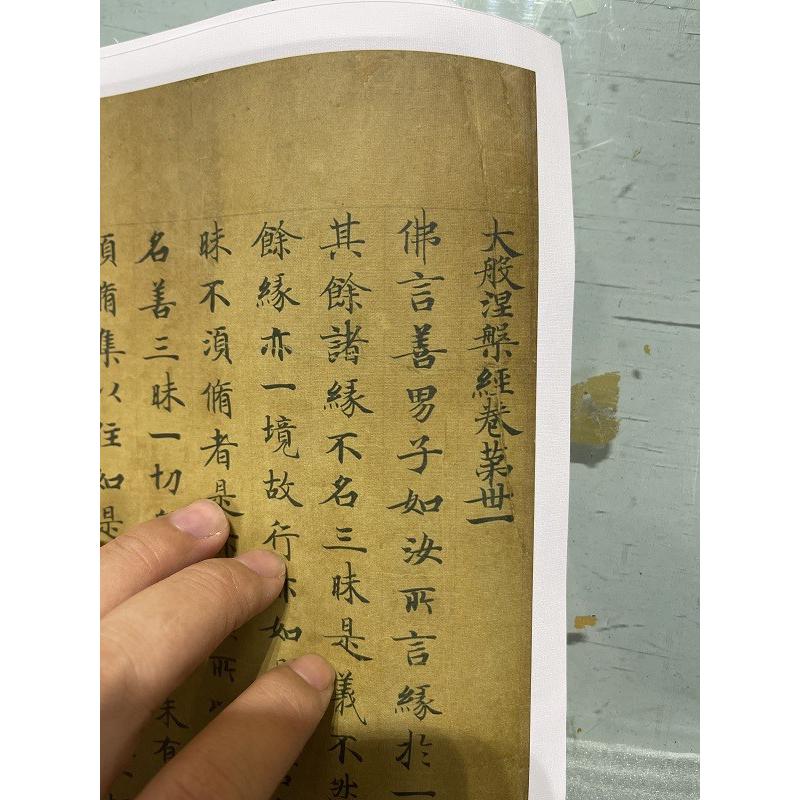 大般涅槃經卷第丗一
佛言善男子如汝所言緣於一
其餘諸緣不名三昧是義不然
餘緣亦一境故行亦如
昧不湏脩者是所
名善三昧一切未有
湏脩集以住如是